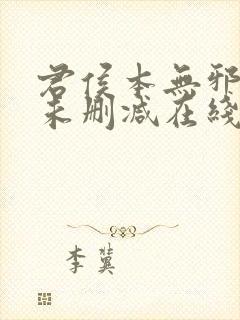 君侯本無邪
未刪减在綫
李冀